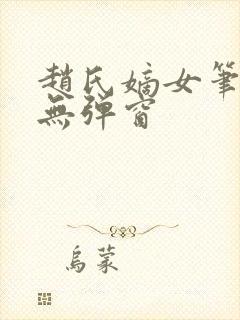 趙氏嫡女筆
無弹窗
烏蒙